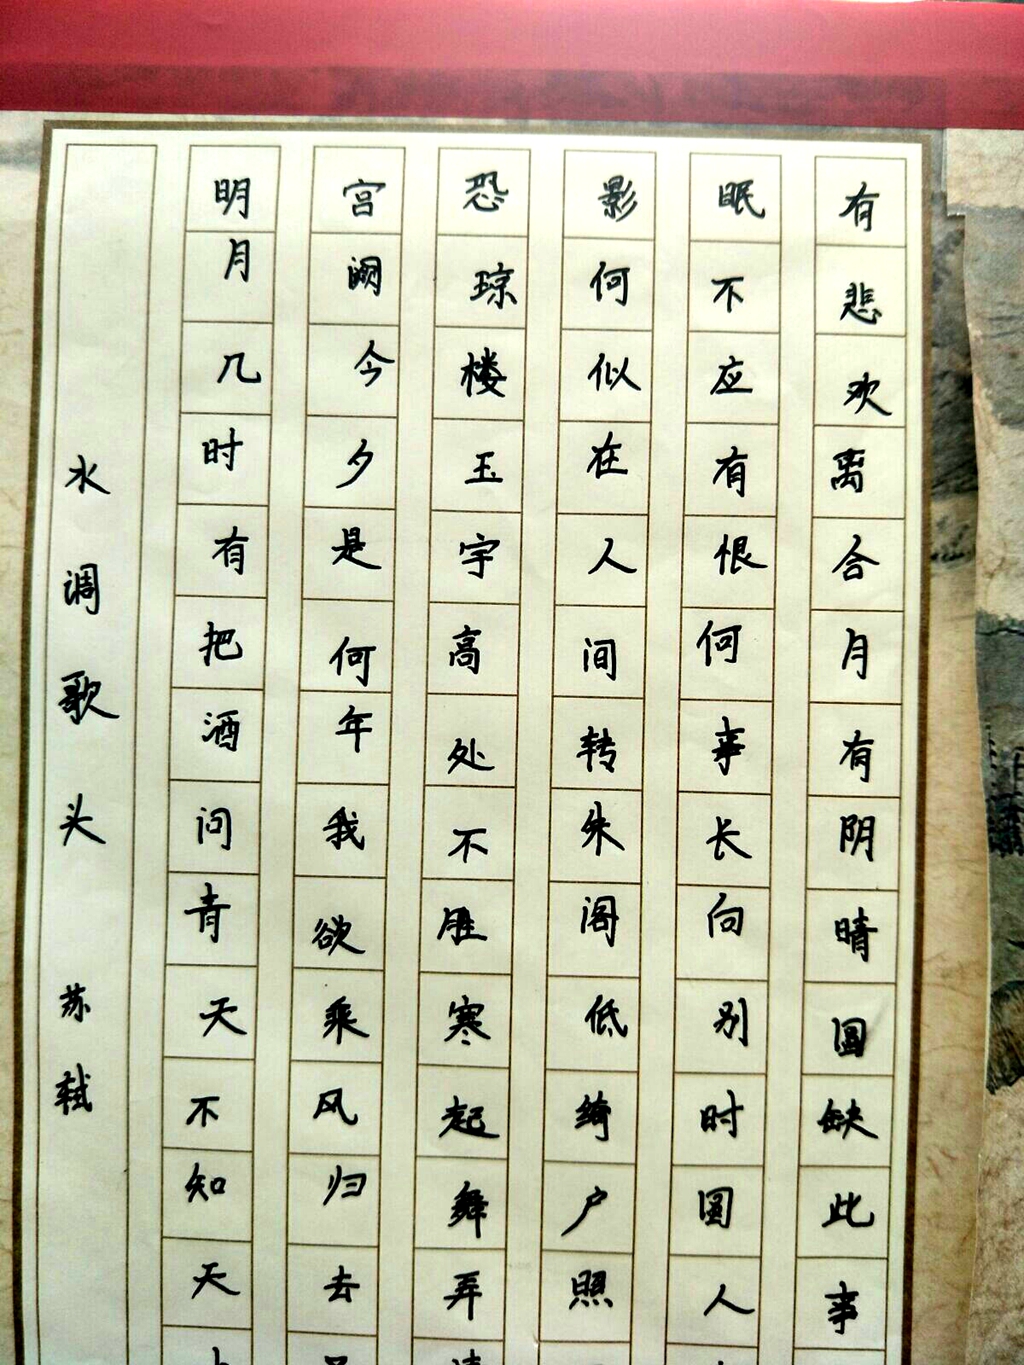 水调歌头 苏轼
明月几时有把酒问青天不知天
宫阙今夕是何年我欲乘风归去
恐琼楼玉宇高处不胜寒起舞弄
影何似在人间转朱阁低绮户照
眠不应有恨何事长向别时圆人
有悲欢离合月有阴晴圆缺此事